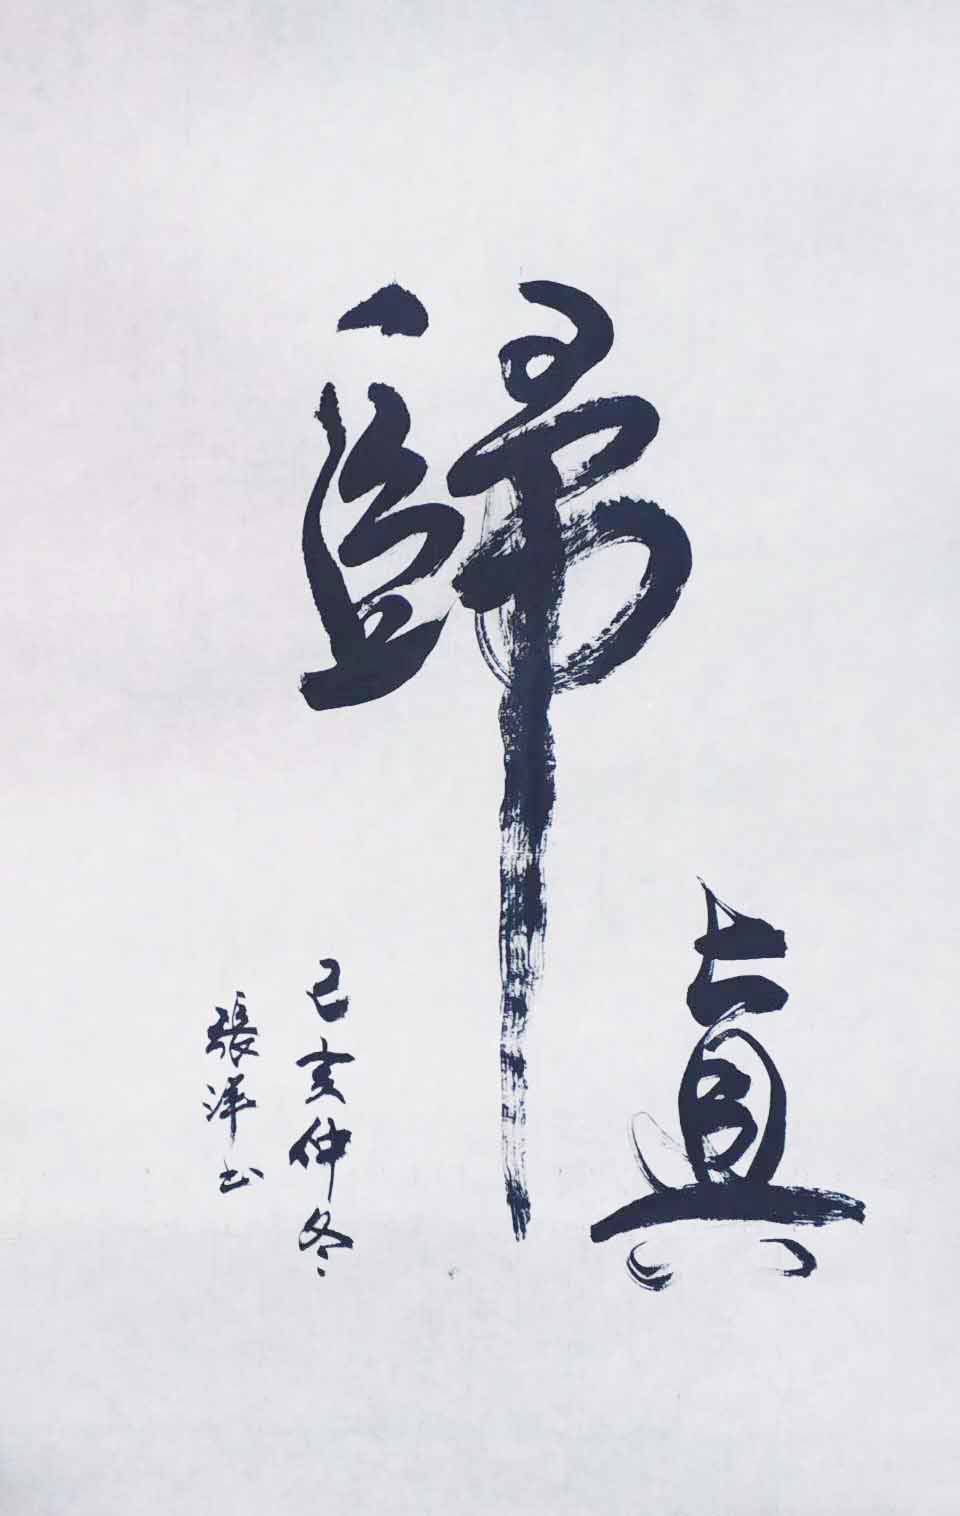 歸真
己亥仲冬
張洋书